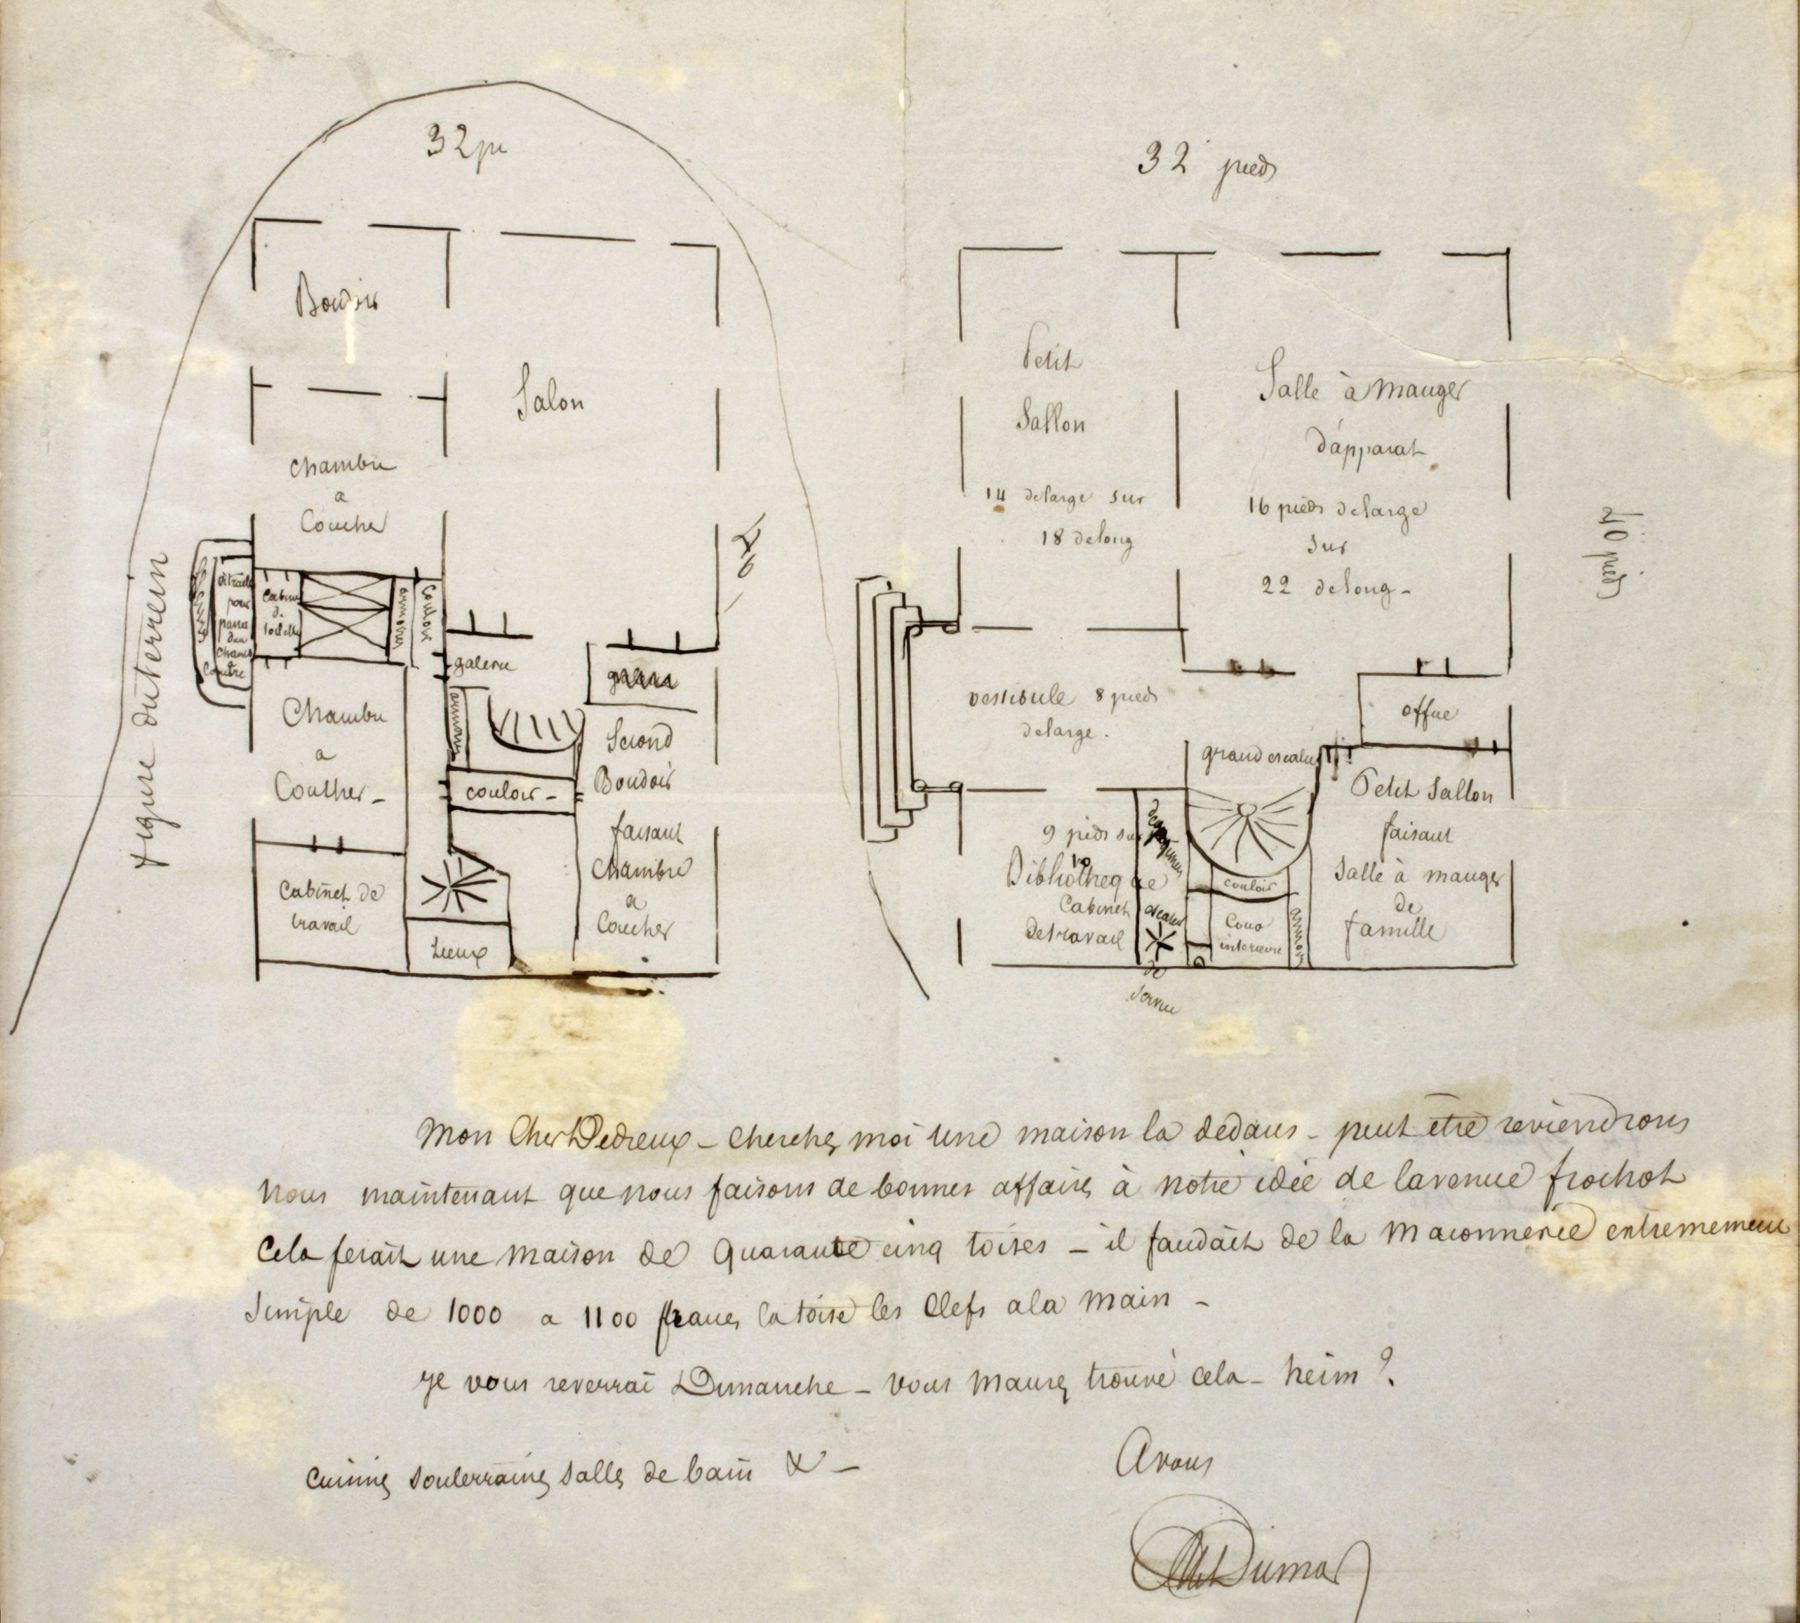 32 pi
Boudoir
Salon
chambre
a
Couche
40
figure du terrein
pour
Cabinet
de
toilette
armoire
Couloir
galerie
armoire
Chambre
a
Coucher -
couloir -
Second
Boudoir
faisant
Chambre
a
Coucher
Cabinet de
travail
Lieux
32 pieds
Petit
Sallon
14 de large sur
18 de long
Salle à manger
d'apparat
16 pieds de large
sur
22 de long -
40 pieds
vestibule 8 pieds
de large.
grand escalier
office
Petit Sallon
faisant
salle à manger
de
famille
9 pieds sur
10
Bibliotheque
Cabinet
de travail
escalier
de
service
couloir
Cour
interieure
armoire
Mon Cher Dedreux - cherchez moi une maison la dedans - peut être reviendrons
nous maintenant que nous faisons de bonnes affaires à notre idée de lavenue frochot
Cela ferait une maison de quarante cinq toises - il faudait de la maconnerie extremement
simple de 1000 a 1100 francs la toise les Clefs a la main -
je vous reverrai Dimanche - vous maurez trouvé cela - heim ?
cuisines souterraines salles de bain & -
A vous
Alex Dumas